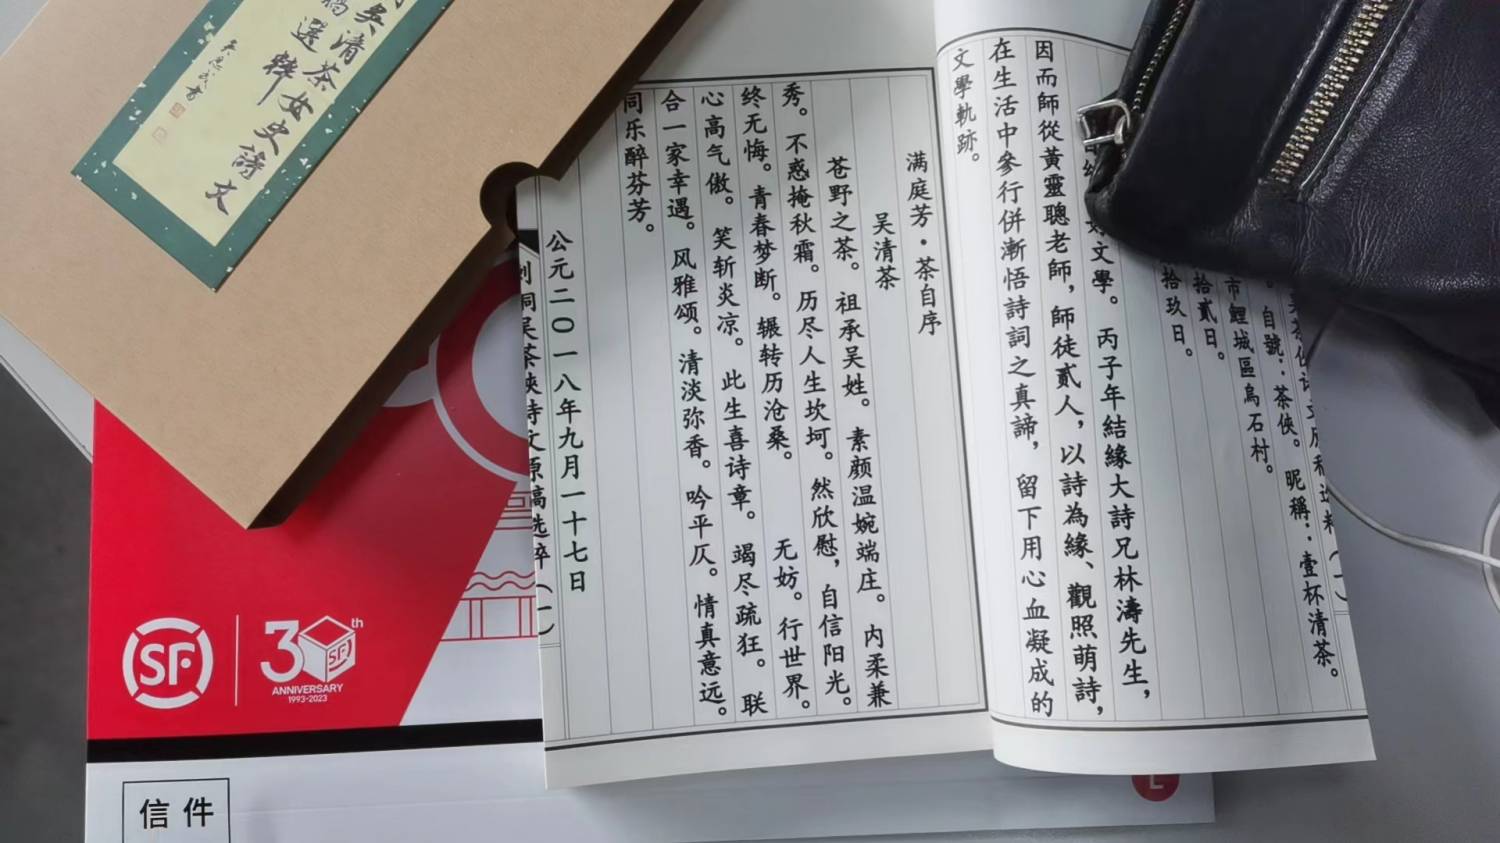 吳清茶女史詩文
稿選粹
因而師從黃靈聰老師，師徒貳人，以詩為緣、觀照萌詩，
在生活中參行併漸悟詩詞之真諦，留下用心血凝成的
文學軌跡。
好文學。丙子年結緣大詩兄林濤先生，
拾玖日。
拾貳日。
市鯉城區烏石村。
自號：茶俠。昵稱：壹杯清茶。
满庭芳·茶自序
吴清茶
苍野之茶。祖承吴姓。素颜温婉端庄。内柔兼
秀。不惑掩秋霜。历尽人生坎坷。然欣慰，自信阳光。
终无悔。青春梦断。辗转历沧桑。无妨。行世界。
心高气傲。笑斩炎凉。此生喜诗章。竭尽疏狂。联
合一家幸遇。风雅颂。清淡弥香。吟平仄。情真意远。
同乐醉芬芳。
公元二〇一八年九月一十七日
诗文原稿选粹（一）
SF
30th
SF
ANNIVERSARY
1993-2023
信件
L